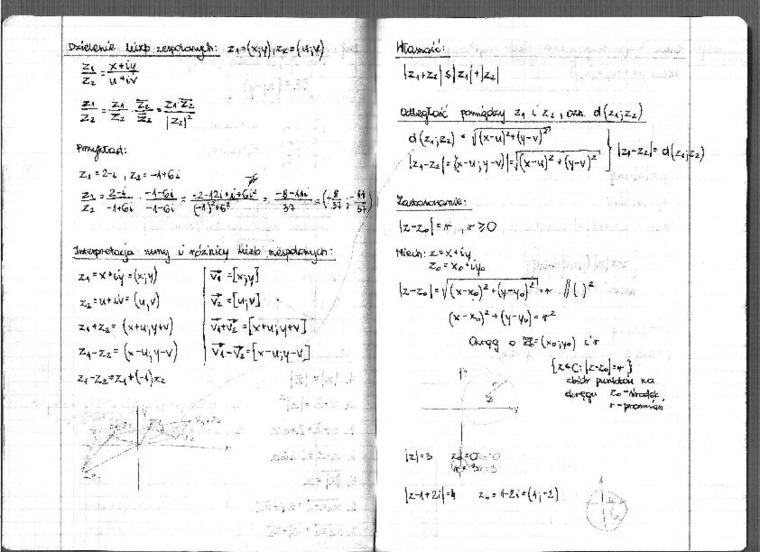 Dzielenie liczb zespolonych: z₁=(x;y), z₂=(u;v)
z₁/z₂ = (x+iy)/(u+iv)
z₁/z₂ = z₁/z₂ · z̄₂/z̄₂ = (z₁·z̄₂)/|z₂|²
Przykład:
z₁=2-i, z₂=-1+6i
z₁/z₂ = (2-i)/(-1+6i) · (-1-6i)/(-1-6i) = (-2-12i+i+6i²)/((-1)²+6²) = (-8-11i)/37 = (-8/37; -11/37)
Interpretacja sumy i różnicy liczb zespolonych:
z₁=x+iy=(x;y) | v₁=[x;y]
z₂=u+iv=(u;v) | v₂=[u;v]
z₁+z₂=(x+u;y+v) | v₁+v₂=[x+u;y+v]
z₁-z₂=(x-u;y-v) | v₁-v₂=[x-u;y-v]
z₁-z₂=z₁+(-1)z₂
Własność:
|z₁+z₂|≤|z₁|+|z₂|
Odległość pomiędzy z₁ i z₂, ozn. d(z₁;z₂)
d(z₁;z₂) = √((x-u)²+(y-v)²)
|z₁-z₂|=|(x-u;y-v)|=√((x-u)²+(y-v)²) } |z₁-z₂|=d(z₁;z₂)
Zastosowanie:
|z-z₀|=r, r≥0
Niech: z=x+iy
z₀=x₀+iy₀
|z-z₀|=√((x-x₀)²+(y-y₀)²)=r //( )²
(x-x₀)²+(y-y₀)²=r²
Okrąg o =(x₀;y₀) i r
{z∈C: |z-z₀|=r}
zbiór punktów na
okręgu z₀-środek,
r-promień
|z|=3 z₀=0
r=3
|z-1+2i|=4 z₀=1-2i=(1;-2)